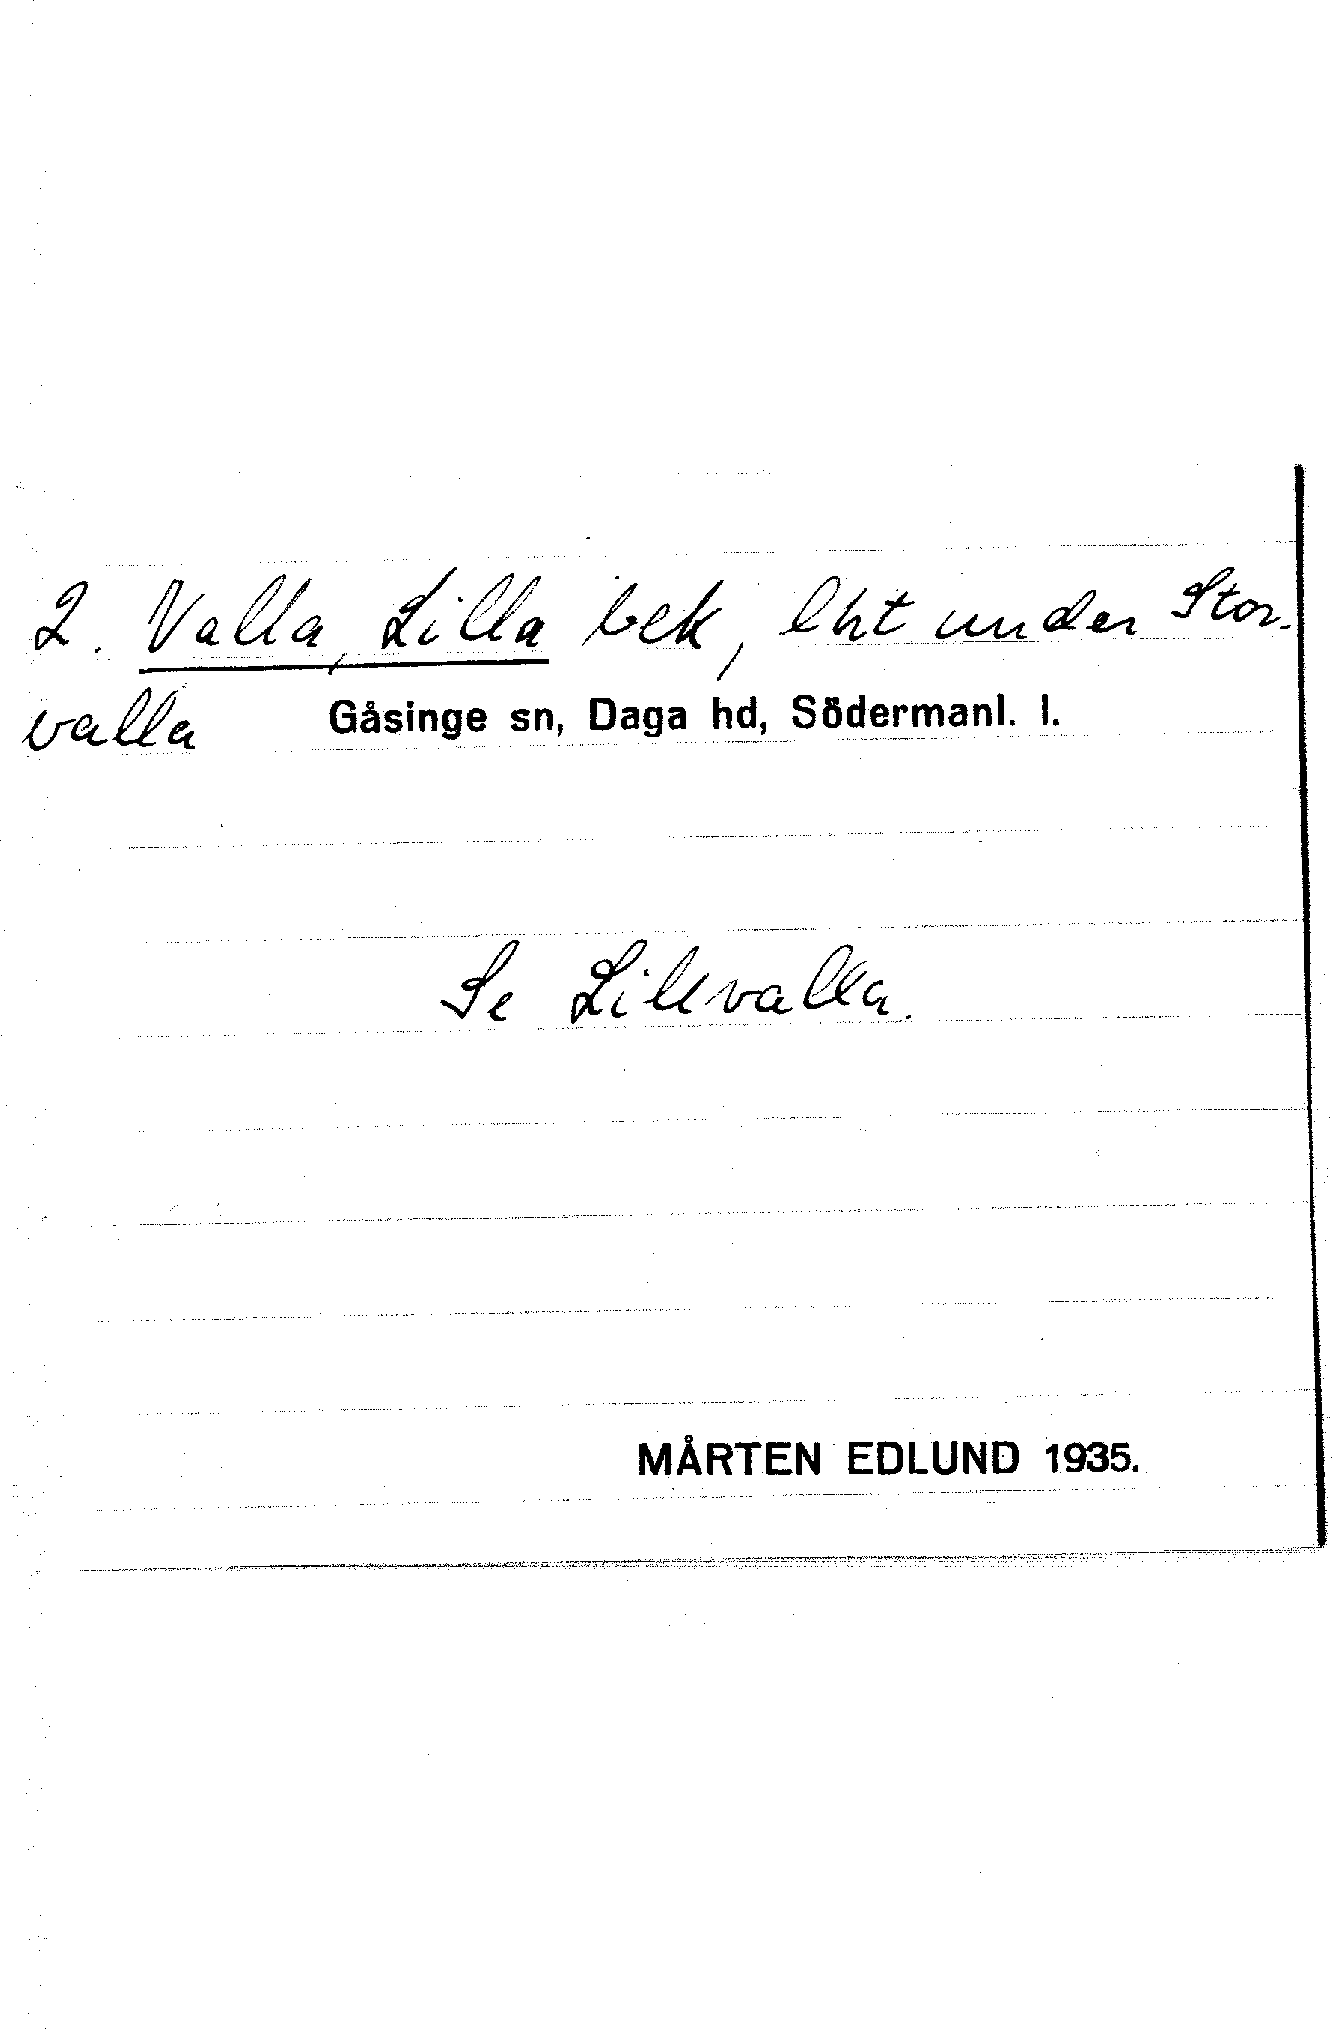 2. Valla, Lilla bek, lht under Stor-
valla Gåsinge sn, Daga hd, Södermanl. l.
Se Lillvalla.
MÅRTEN EDLUND 1935.